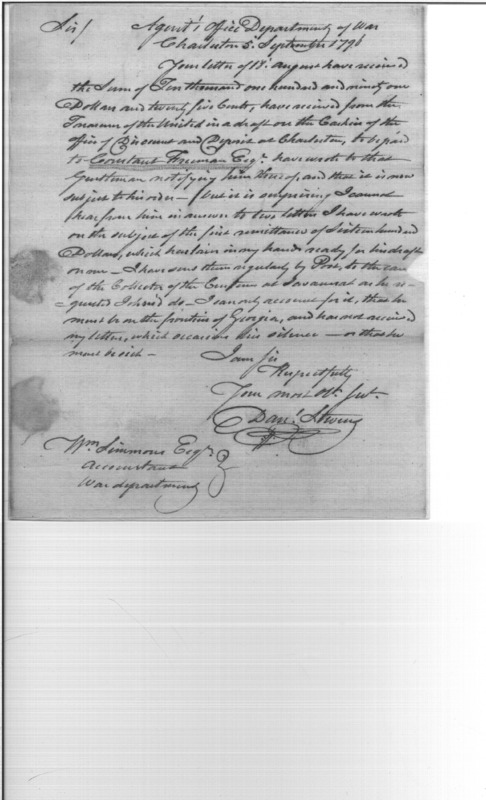 Sir/ Agent's Office Department of War
Charleston 5th September 1796
Your letter of 18th august have received
the Sum of Ten thousand one hundred and ninety one
Dollars and twenty five Cents, have received from the
Treasurer of the United in a draft on the Cashier of the
office of Discount and Deposit at Charleston, to be paid
to Constant Freeman Esqr. have wrote to that
Gentleman notifying him thereof, and that it is now
subject to his order — but it is surprising I cannot
hear from him in answer to two letters I have wrote
on the subject of the first remittance of Sixteen hundred
Dollars, which has lain in my hands ready for his draft
on me — I have sent them regularly by Post, to the care
of the Collector of the Customs at Savannah as he re-
-quested I should do — I can only account for it, that he
must be on the frontiers of Georgia, and has not received
my letters, which occasions his silence — or that he
must be sick —
I am Sir
Respectfully
Your most Obt. Servt.
Danl. Stevens
Wm. Simmons Esqr.
Accountant
War department